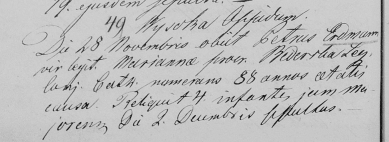 19. ejusdem sepultus.
49 Wysoka Oppidum.
Die 28 Novembris obiit Petrus Erdmann
vir legit. Mariannae procr.
Cath. numerans 38 annos aetatis
causa. Reliquit 4 infantes jam ma
jorenn. Die 2. Decembris sepultus.